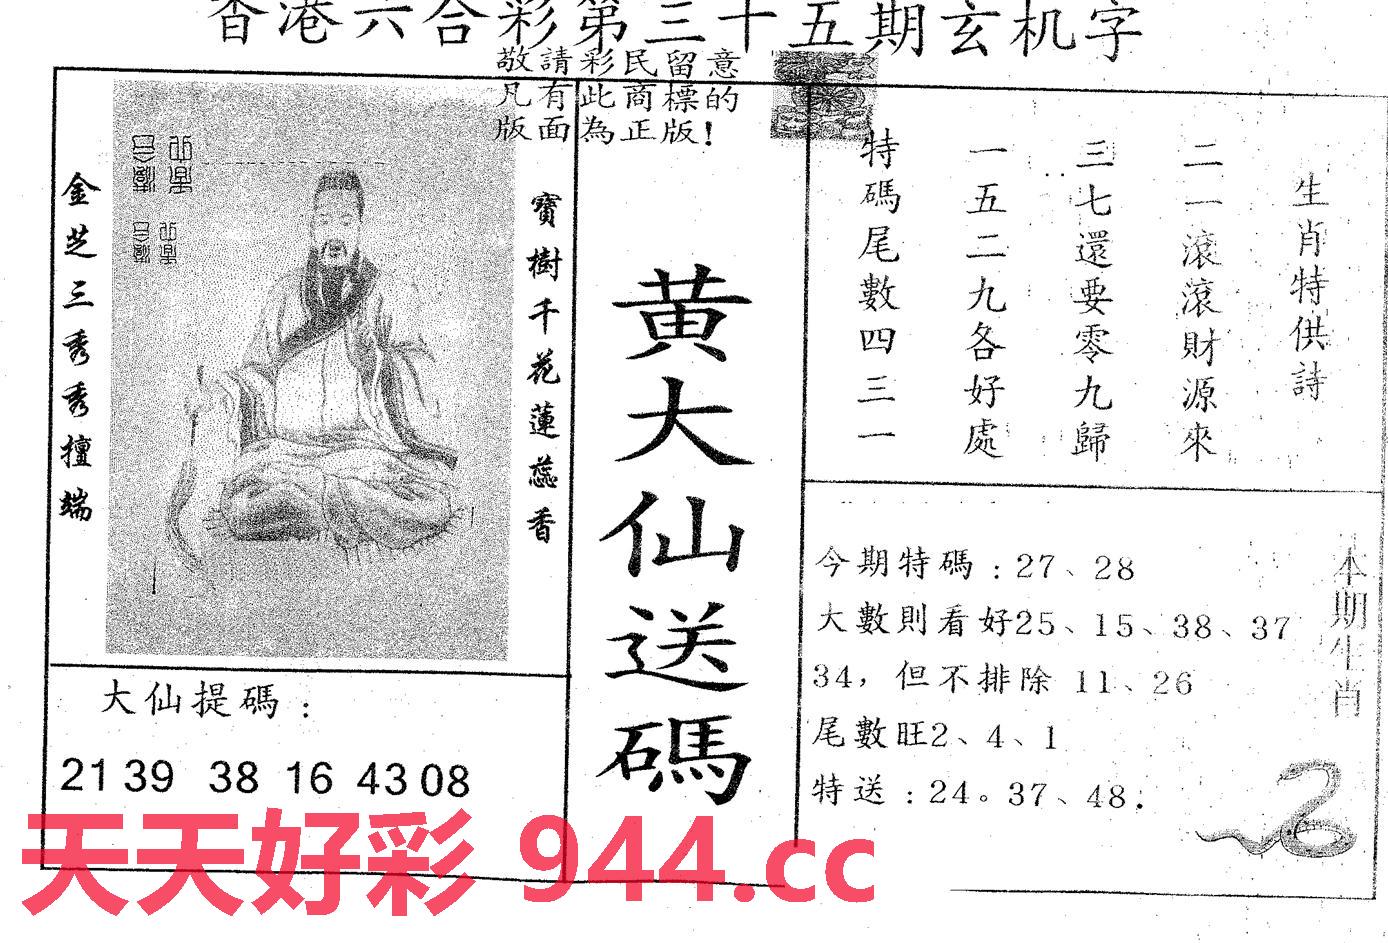 香港六合彩第三十五期玄机字
敬請彩民留意
凡有此商標的
版面為正版!
金芝三秀秀擅端
寶樹千花蓮蕊香
黄大仙送碼
生肖特供詩
二一滾滾財源來
三七還要零九歸
一五二九各好處
特碼尾數四三一
大仙提碼:
21 39 38 16 43 08
今期特碼:27、28
大數則看好25、15、38、37
34，但不排除 11、26
尾數旺2、4、1
特送:24。37、48.
本期生肖
天天好彩 944.cc